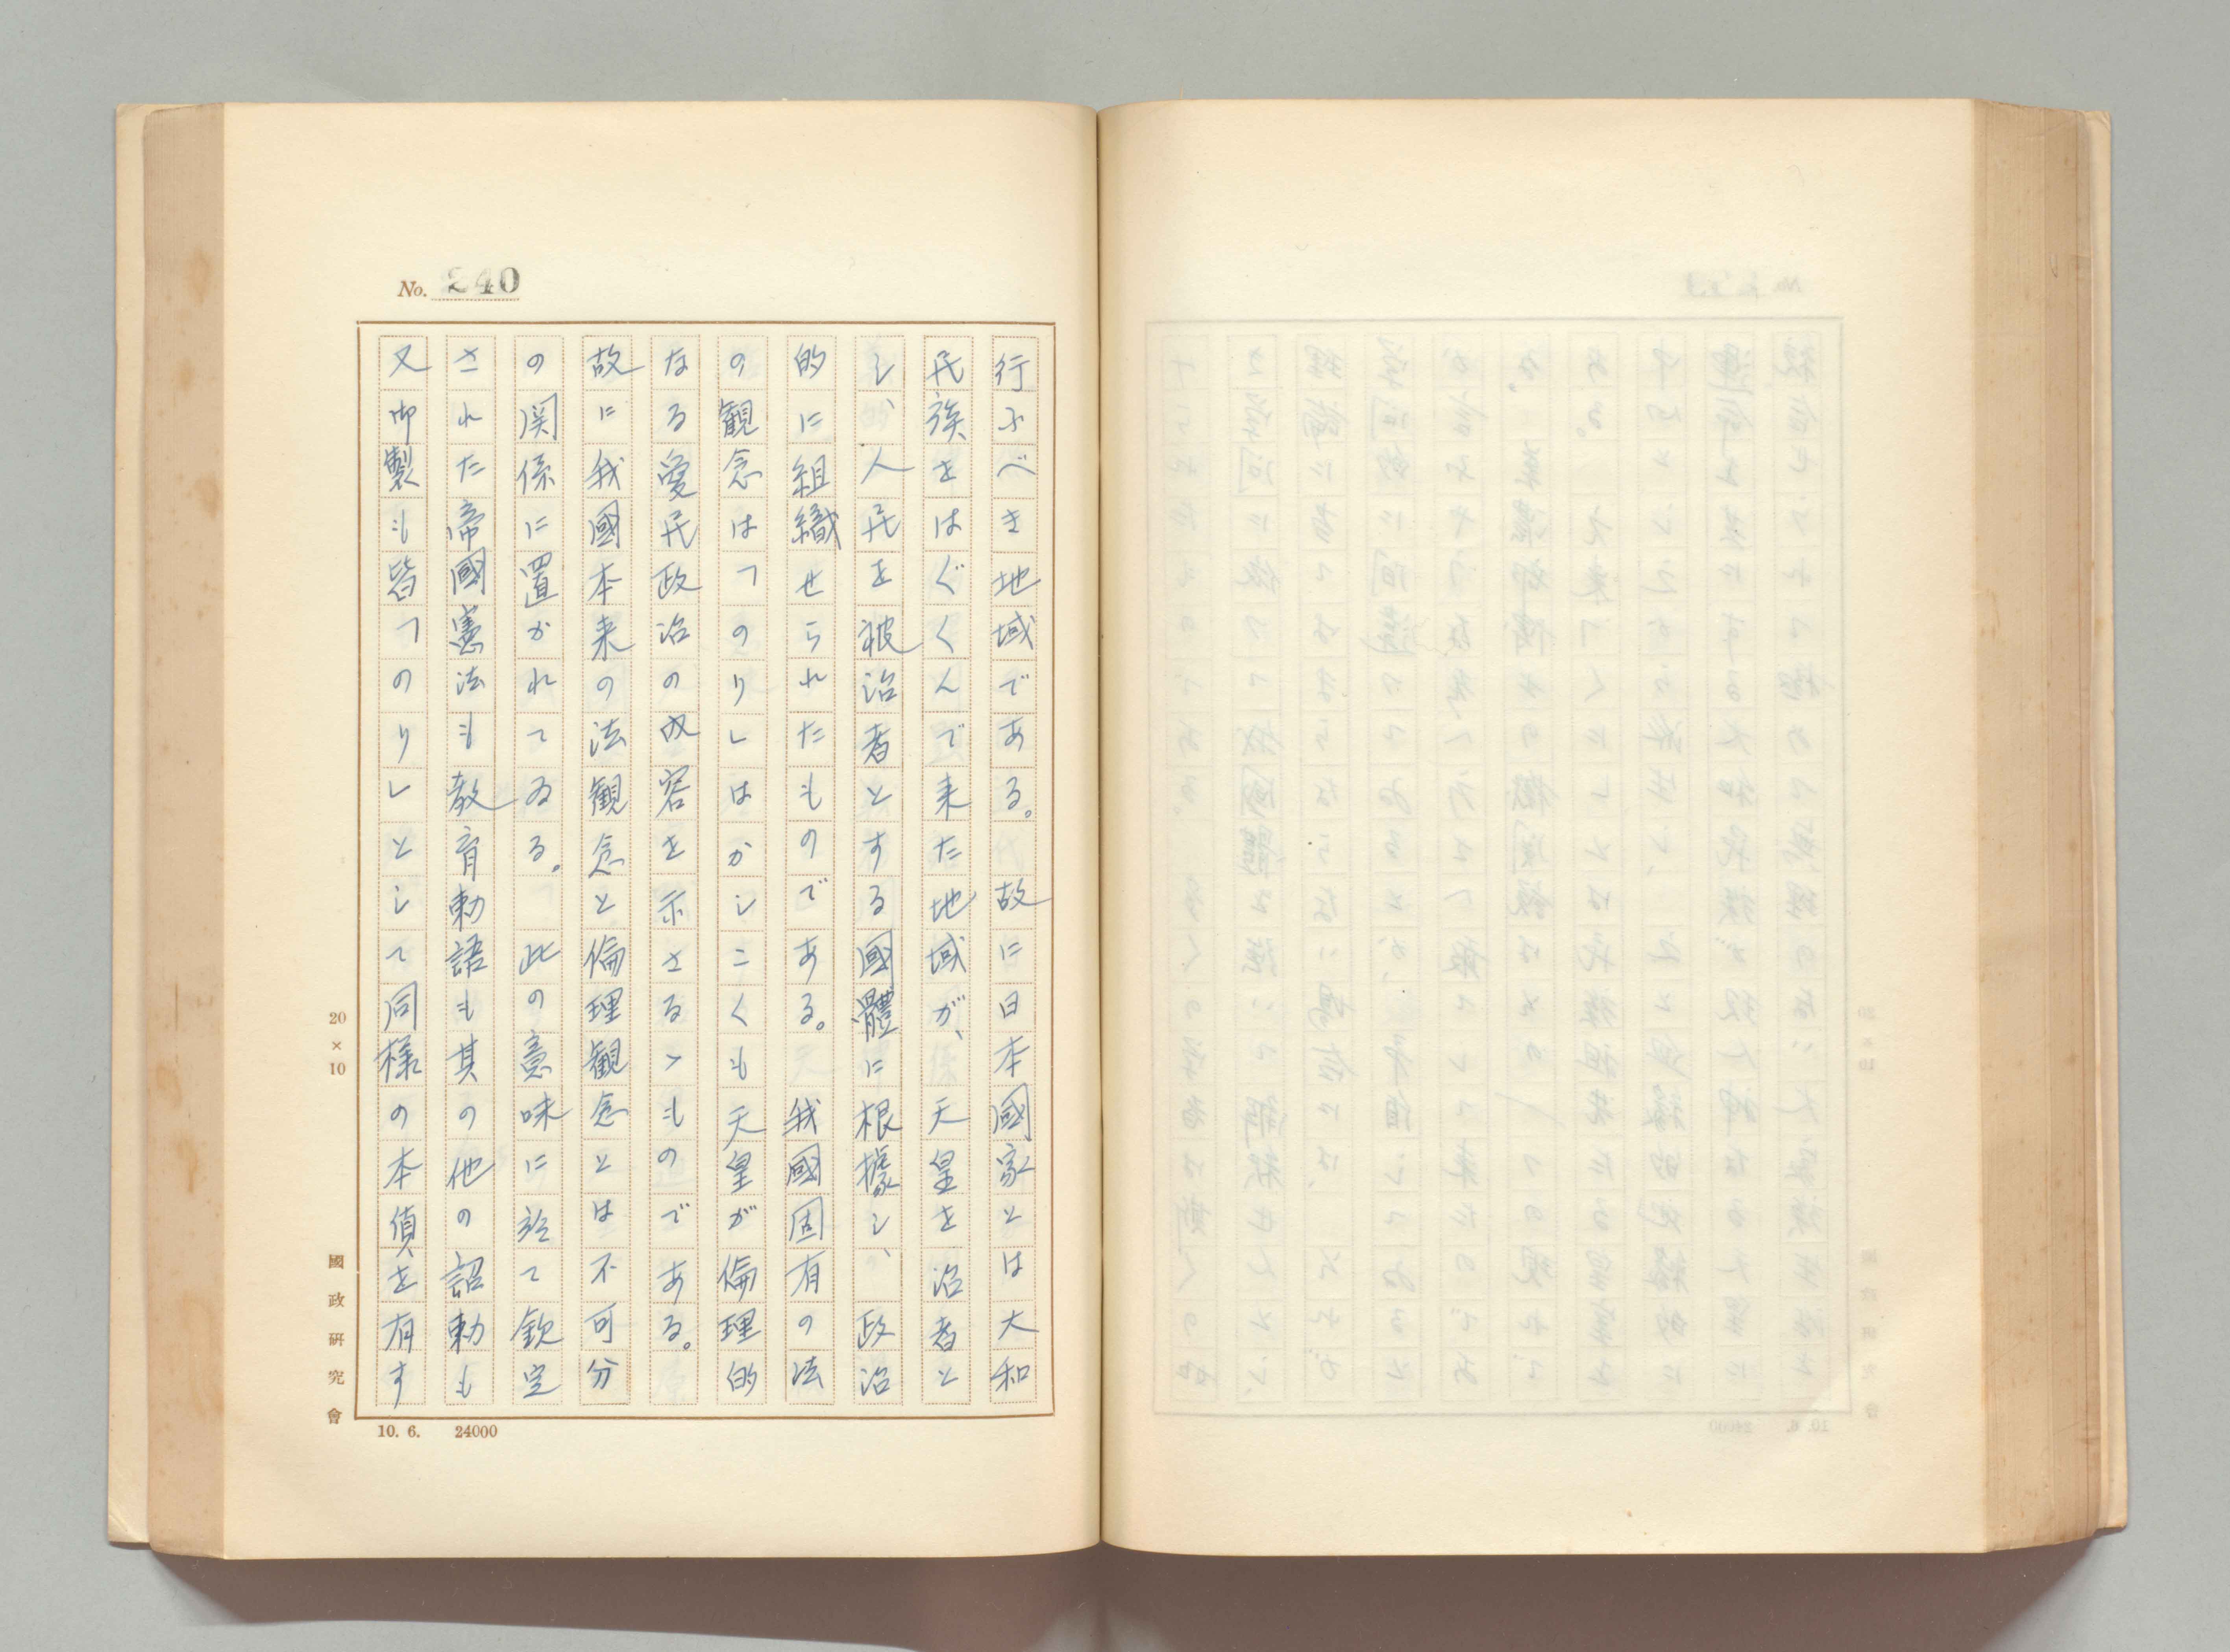 No. 240
行ふべき地域である。故に日本國家とは大和
民族をはぐくんで来た地域が、天皇を治者と
し、人民を被治者とする國體に根據し、政治
的に組織せられたものである。我國固有の法
の観念は「のり」はかしこくも天皇が倫理的
なる愛民政治の内容を示さるゝものである。
故に我國本来の法観念と倫理観念とは不可分
の関係に置かれてゐる。此の意味に於て欽定
された帝國憲法も教育勅語も其の他の詔勅も
又御製も皆「のり」として同様の本質を有す
20×10
國政研究會
10. 6. 24000